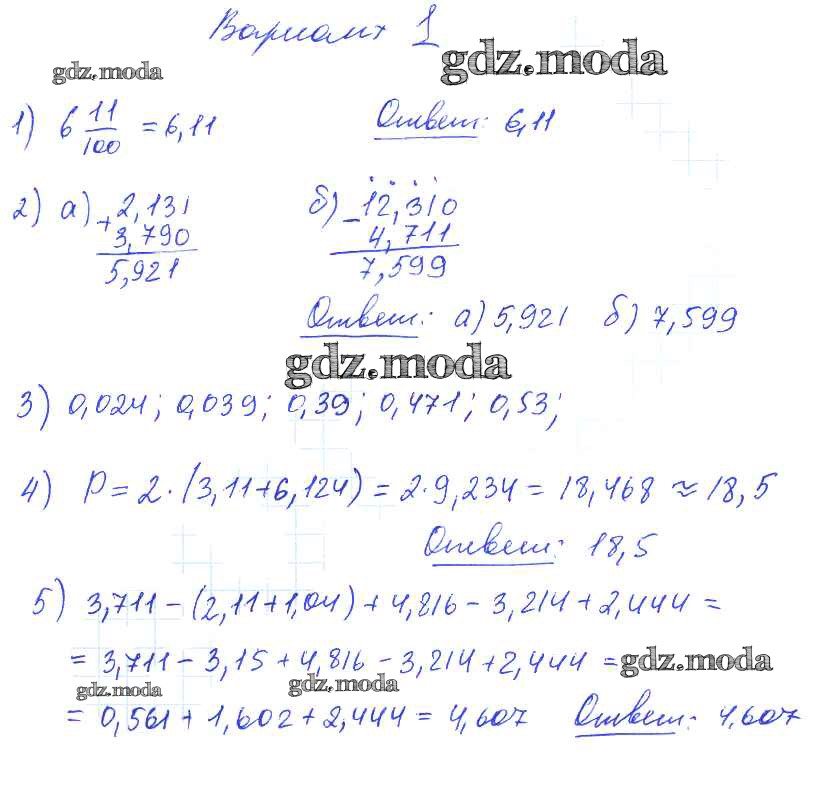 Вариант 1
gdz.moda
gdz.moda
1) 6 11/100 = 6,11 Ответ: 6,11
2) а) + 2,131 б) - 12,310
3,790 4,711
5,921 7,599
Ответ: а) 5,921 б) 7,599
gdz.moda
3) 0,024; 0,039; 0,39; 0,471; 0,53;
4) P = 2 · (3,11+6,124) = 2·9,234 = 18,468 ≈ 18,5
Ответ: 18,5
5) 3,711 - (2,11+1,04) + 4,816 - 3,214 + 2,444 =
= 3,711 - 3,15 + 4,816 - 3,214 + 2,444 =
gdz.moda
gdz.moda
gdz.moda
= 0,561 + 1,602 + 2,444 = 4,607 Ответ: 4,607